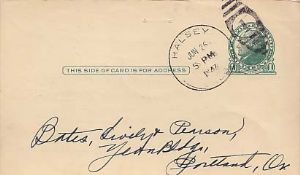 HALSEY
JUN 26
5 PM
THIS SIDE OF CARD IS FOR ADDRESS
Bates, Lively & Pearson,
Yeon Bldg,
Portland, Or